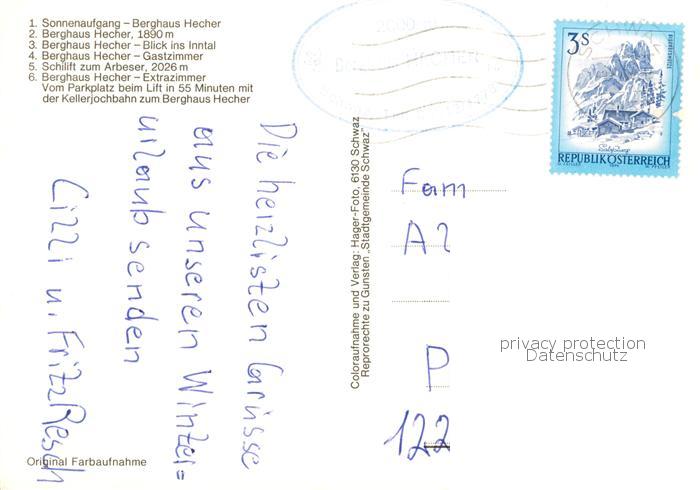 1. Sonnenaufgang – Berghaus Hecher
2. Berghaus Hecher, 1890 m
3. Berghaus Hecher – Blick ins Inntal
4. Berghaus Hecher – Gastzimmer
5. Schilift zum Arbeser, 2026 m
6. Berghaus Hecher – Extrazimmer
Vom Parkplatz beim Lift in 55 Minuten mit
der Kellerjochbahn zum Berghaus Hecher
Die herzlisten Grüsse
aus unseren Winter=
urlaub senden
Cilli u. Fritz Resch
Original Farbaufnahme
Coloraufnahme und Verlag: Hager-Foto, 6130 Schwaz
Reprorechte zu Gunsten „Stadtgemeinde Schwaz"
SCHWAZ
3 S
REPUBLIK ÖSTERREICH
Fam
A2
P
122
privacy protection
Datenschutz